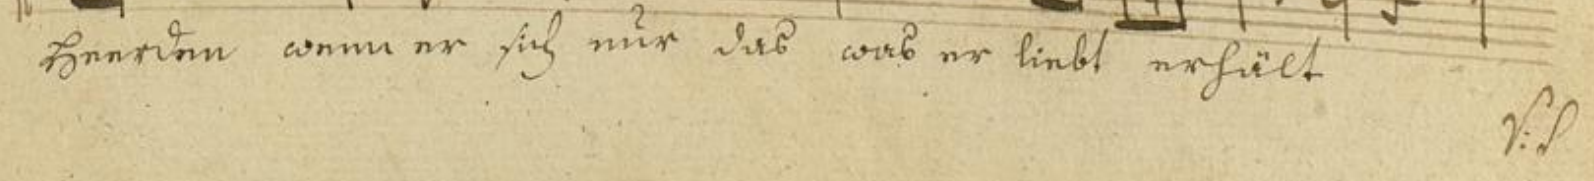 Heerden wenn er sich nur das was er liebt erhält
V: S